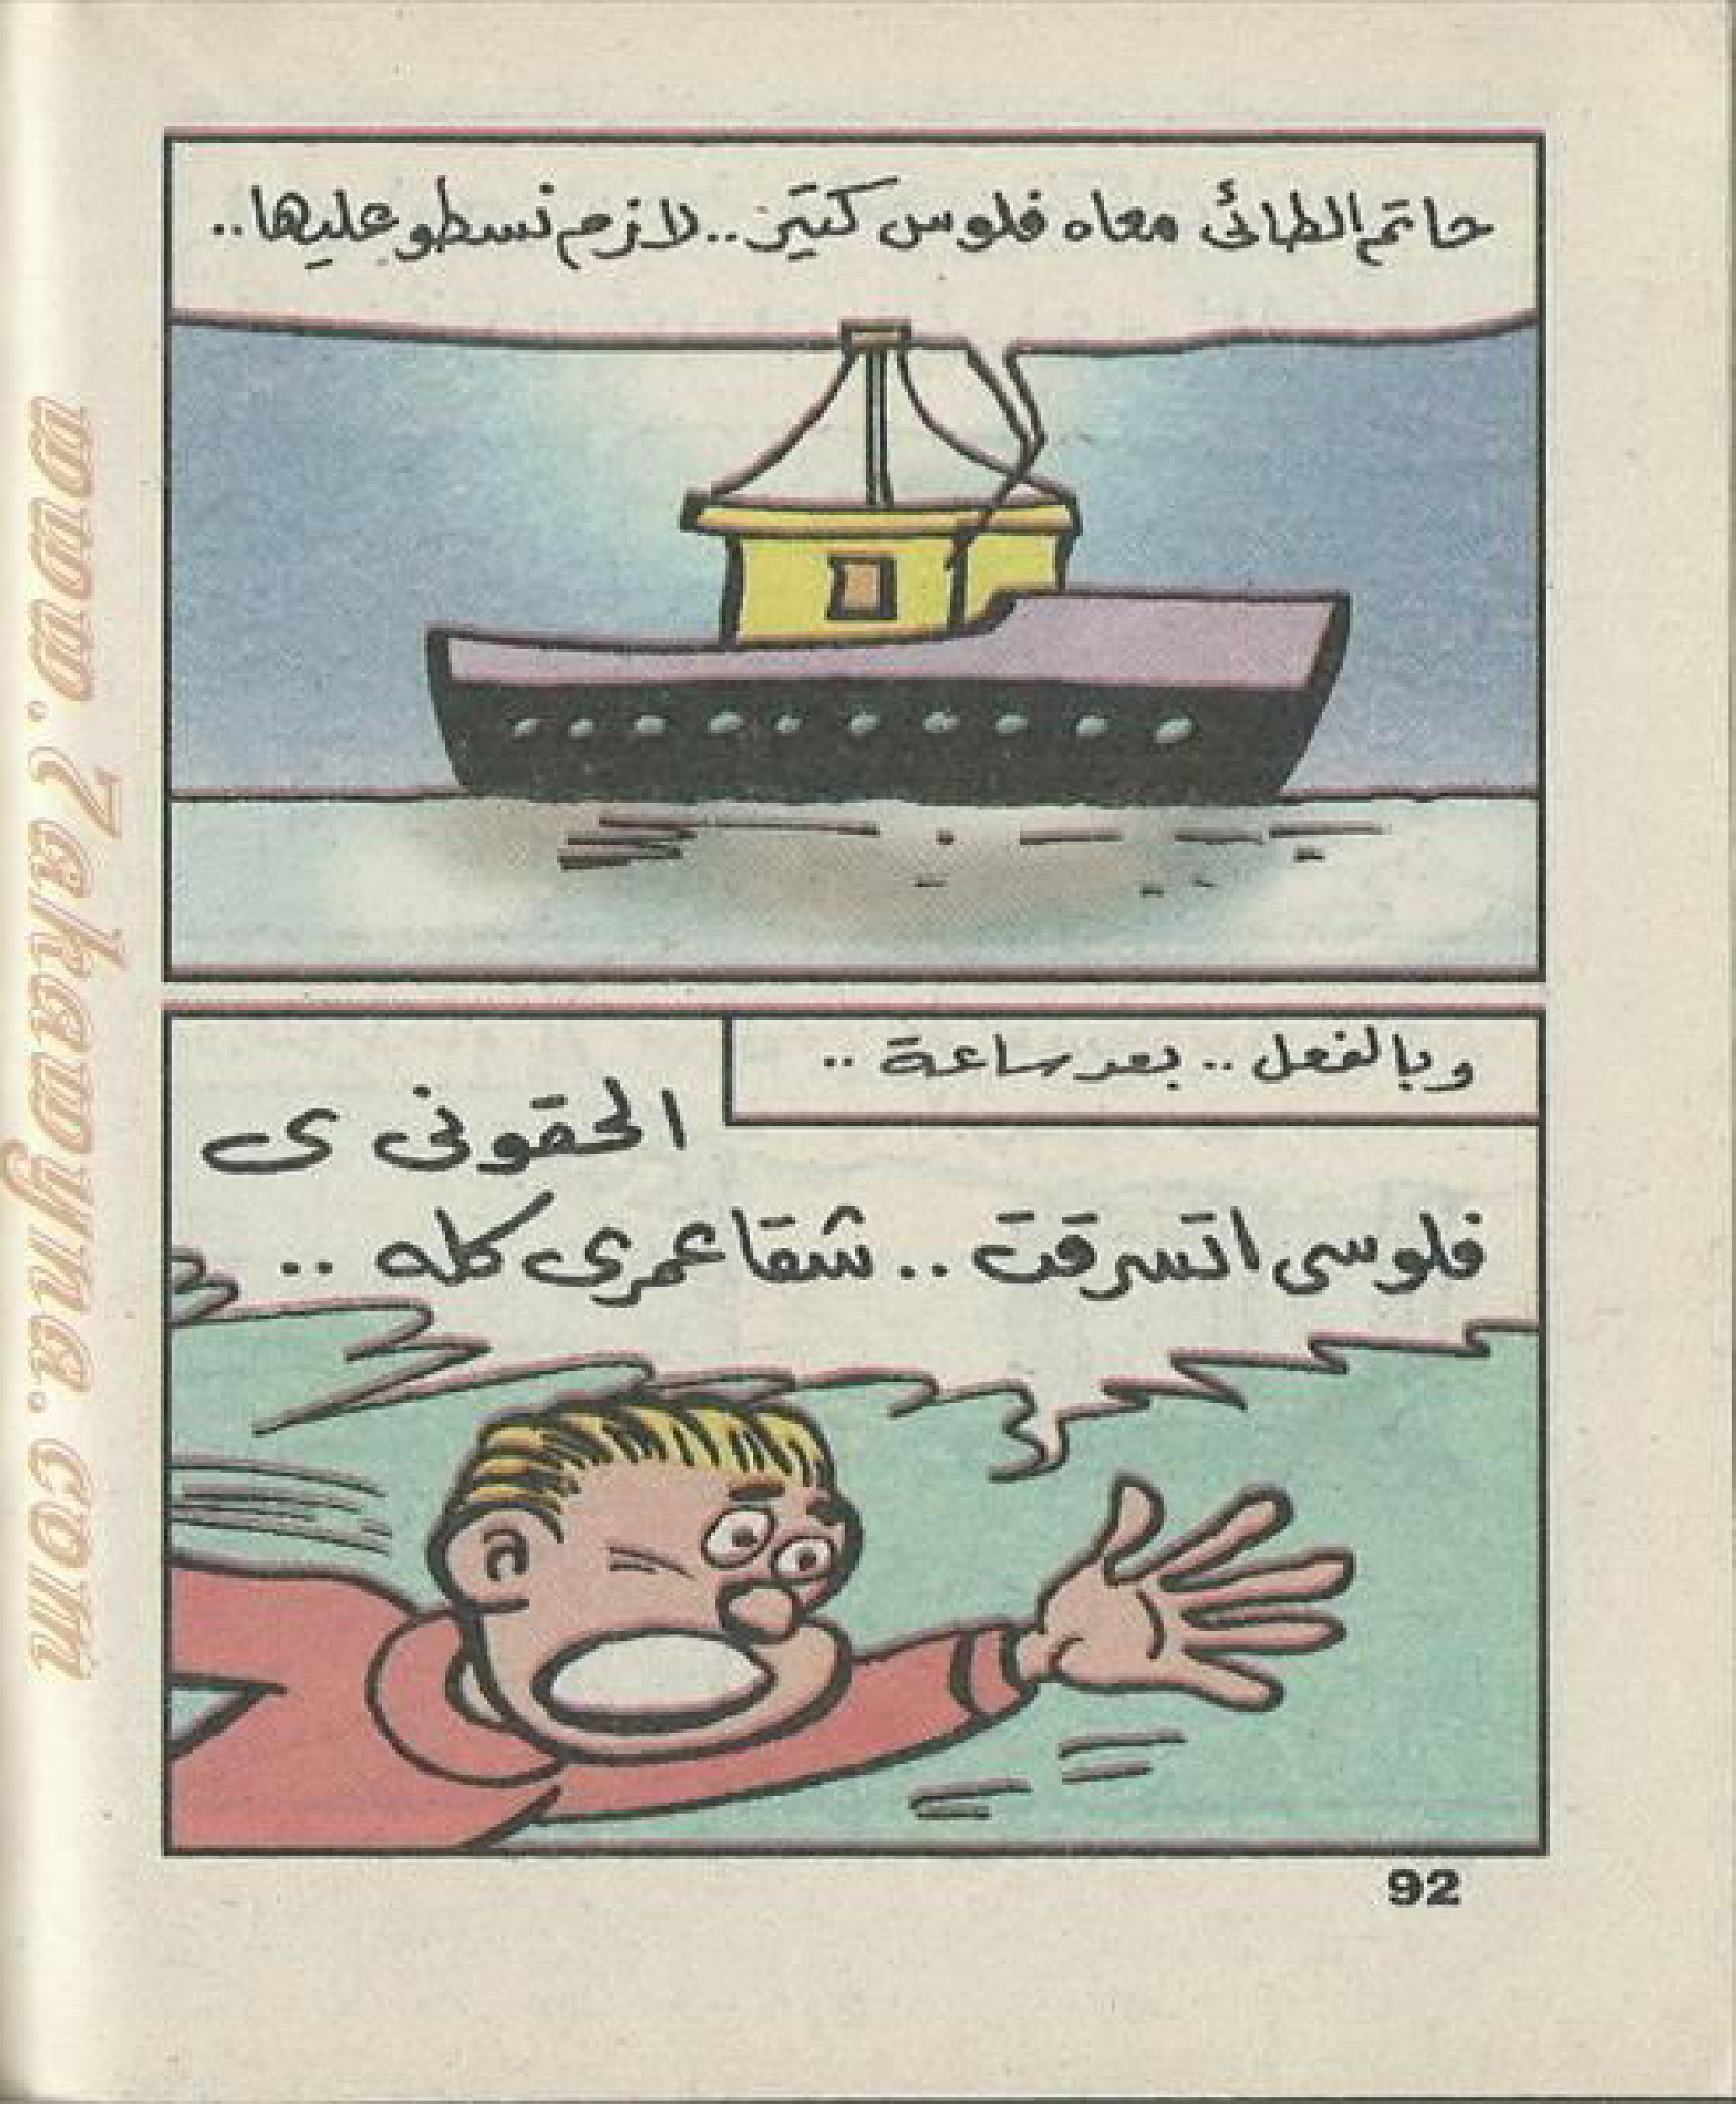 حاتم الطائى معاه فلوس كتير.. لازم نسطو عليها..
وبالفعل.. بعد ساعة..
الحقونى ى
فلوسى اتسرقت.. شقا عمرى كله..
92
www.7ekaayna.com